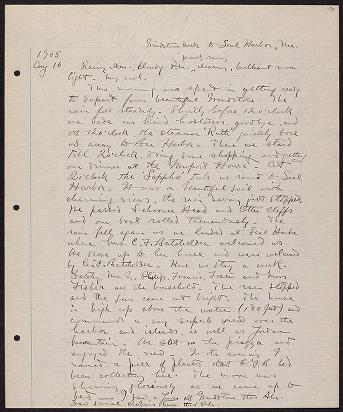 Grindstone Neck to Seal Harbor, Me.
1905
Aug 16
Rainy
light. Very cool.
This morning was spent in getting ready
to depart from beautiful Grindstone. The
rain fell steadily. Shortly before 12 o'clock
we bade our kind hostesses goodbye, and
at 12 o'clock the steamer "Ruth" quickly bore
us away to Bar Harbor. There we staid
till 2 o'clock, doing some shopping and getting
our dinner at the Newport House. At
2 o'clock the Sappho took us round to Seal
Harbor. It was a beautiful sail with
charming views, the rain having just stopped.
We passed Schooner Head and Otter Cliffs
and our boat rolled tremendously. The
rain fell again as we landed at Seal Harbor
where Mrs. C. F. Batchelder welcomed us.
We drove up to her house and were welcomed
by C. F. Batchelder. Here we stay a week.
Philip, Francis
Fisher are the household. The rain stopped
and the sun came out bright. The house
is high up above the water (180 feet) and
commands a very superb view over the
harbor and islands, as well as Jordan
Mountain. We sat on the piazza and
enjoyed the view. In the evening I
named a pile of plants that C. F. B. had
been collecting here. The moon was
shining gloriously as we went up to
bed